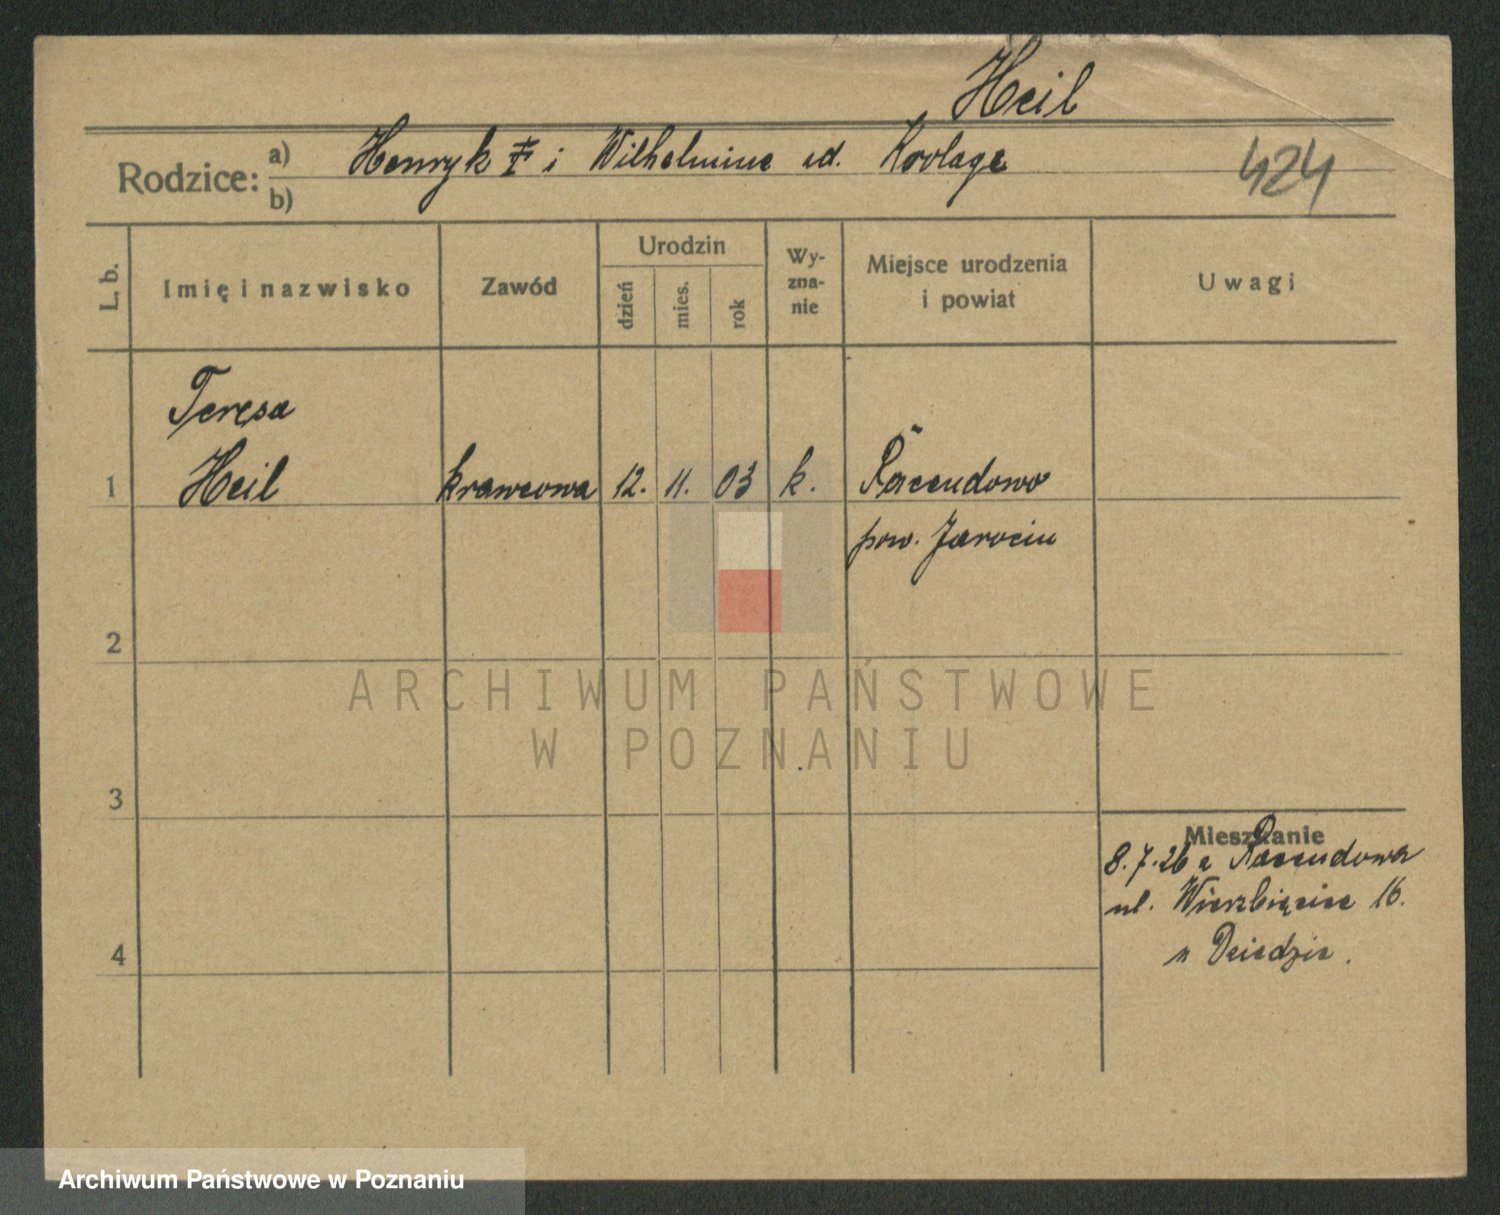 Heil
Rodzice: a) Henryk ‡ i Wilhelmine zd. Kovlage
b)
424
L. b.
Imię i nazwisko
Zawód
Urodzin
dzień
mies.
rok
Wy-
zna-
nie
Miejsce urodzenia
i powiat
Uwagi
Teresa
1 Heil krawcowa 12. 11. 03 k. Paczudowo
pow. Jarocin
2
ARCHIWUM PAŃSTWOWE
W POZNANIU
3
Mieszkanie
8.7.26 z
ul. Wierzbięcice 16.
4
Archiwum Państwowe w Poznaniu